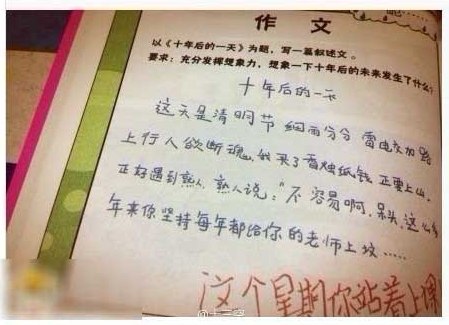 作 文
以《十年后的一天》为题，写一篇叙述文。
要求：充分发挥想象力，想象一下十年后的未来发生了什么？
十年后的一天
这天是清明节 细雨分分 雷电交加 路
上行人欲断魂，我买了香烛纸钱 正要上山，
正好遇到熟人，熟人说：“不容易啊，呆头，这么多
年来你坚持每年都给你的老师上坟……
这个星期你站着上课